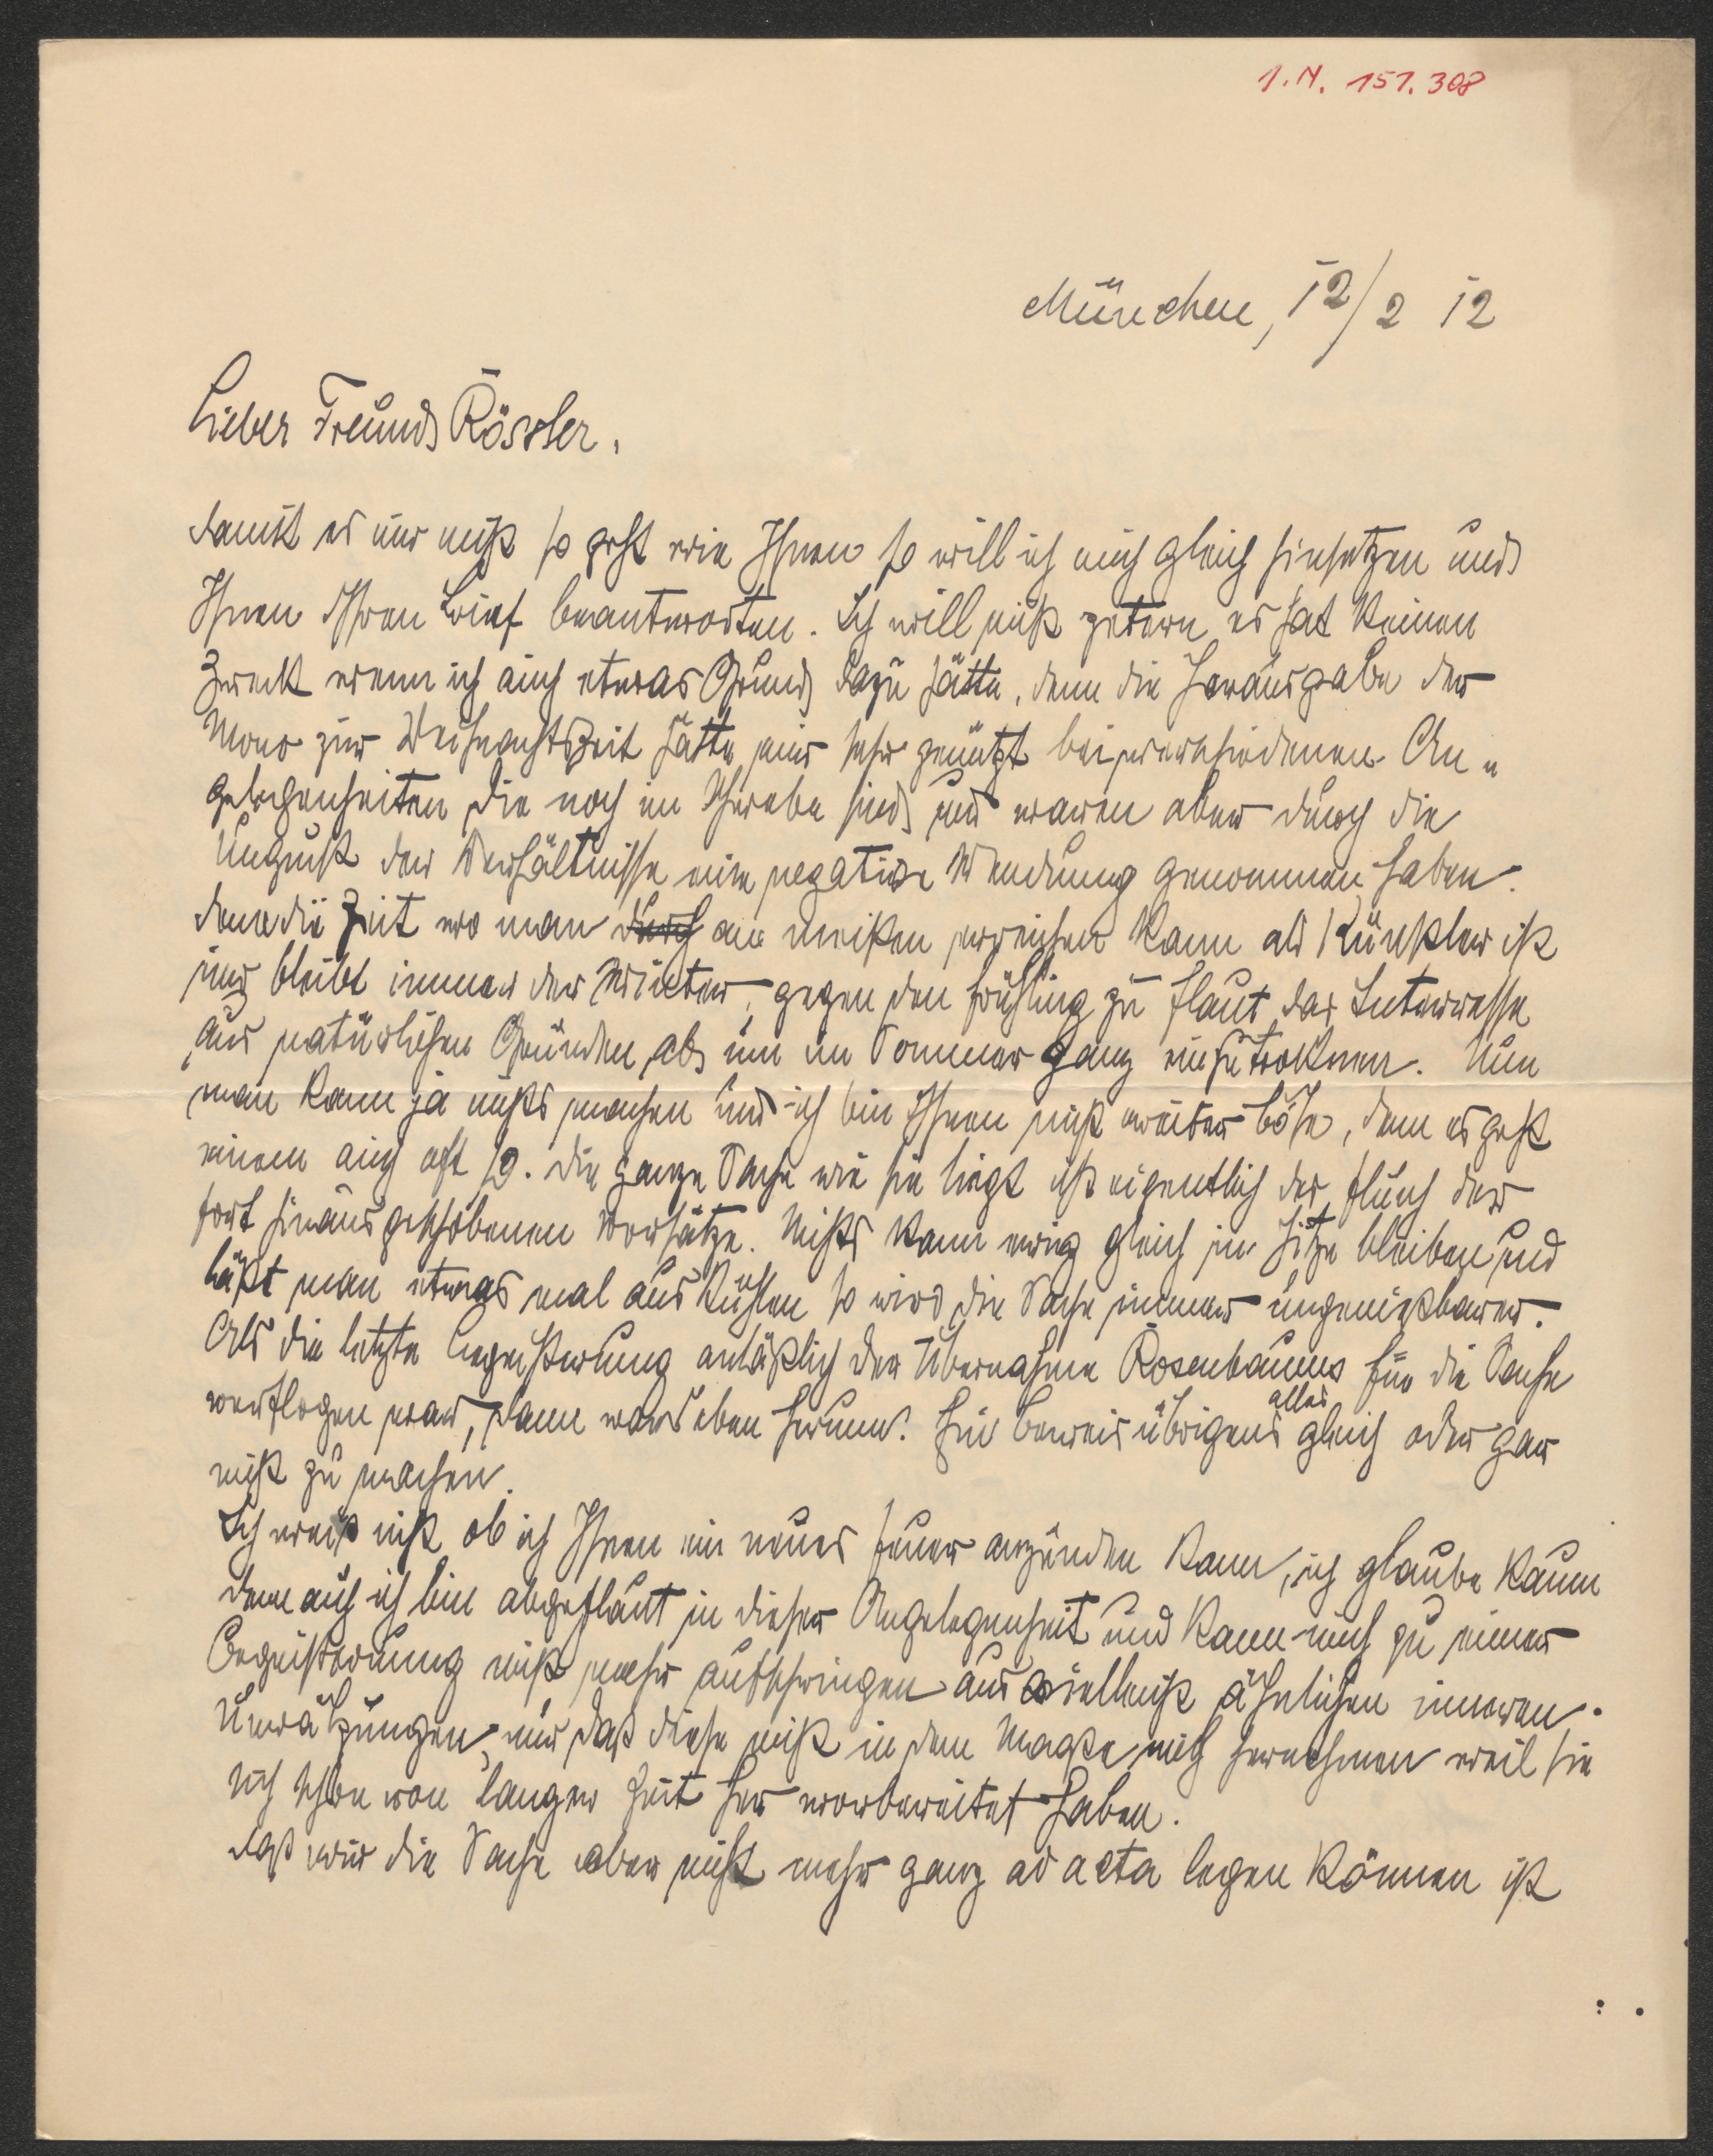 I.N. 151.308
München, 12/2 12
Lieber Freund Rössler,
damit es mir nicht so geht wie Ihnen so will ich mich gleich hinsetzen und
Ihnen Ihren Brief beantworten. Ich will nicht zetern es hat keinen
Zweck wenn ich auch etwas Grund dazu hätte, denn die Herausgabe der
Mono zur Weihnachtszeit hätte mir sehr genützt bei verschiedenen An„
gelegenheiten die noch im Schwebe sind und waren aber durch die
Ungunst der Verhältnisse eine negative Wendung genommen haben.
denn die Zeit wo man durch am meisten erreichen kann als Künstler ist
und bleibt immer der Winter, gegen den Frühling zu flaut das Interresse
aus natürlichen Gründen ab um im Sommer ganz einzutroknen. Nun
man kann ja nichts machen und ich bin Ihnen nicht weiter böse, denn es geht
einem auch oft so. Die ganze Sache wie sie liegt ist eigentlich der Fluch der
fort hinausgeschobenen Vorsätze. Nichts kann ewig gleich in Hitze bleiben und
läßt man etwas mal auskühlen so wird die Sache immer ungenießbarer.
Als die letzte Begeisterung anläßlich der Übernahme Rosenbaums für die Sache
verflogen war, dann wars eben herum. Ein Beweis übrigens alles gleich oder gar
nicht zu machen.
Ich weiß nicht ob ich Ihnen ein neues Feuer anzünden kann, ich glaube kaum
denn auch ich bin abgeflaut in dieser Angelegenheit und kann mich zu einer
Begeisterung nicht mehr aufschwingen aus vielleicht ähnlichen inneren
Umwälzungen, nur daß diese nicht in dem Maße mich hernehmen weil sie
sich schon von langer Zeit her vorbereitet haben.
daß wir die Sache aber nicht mehr ganz ad acta legen können ist